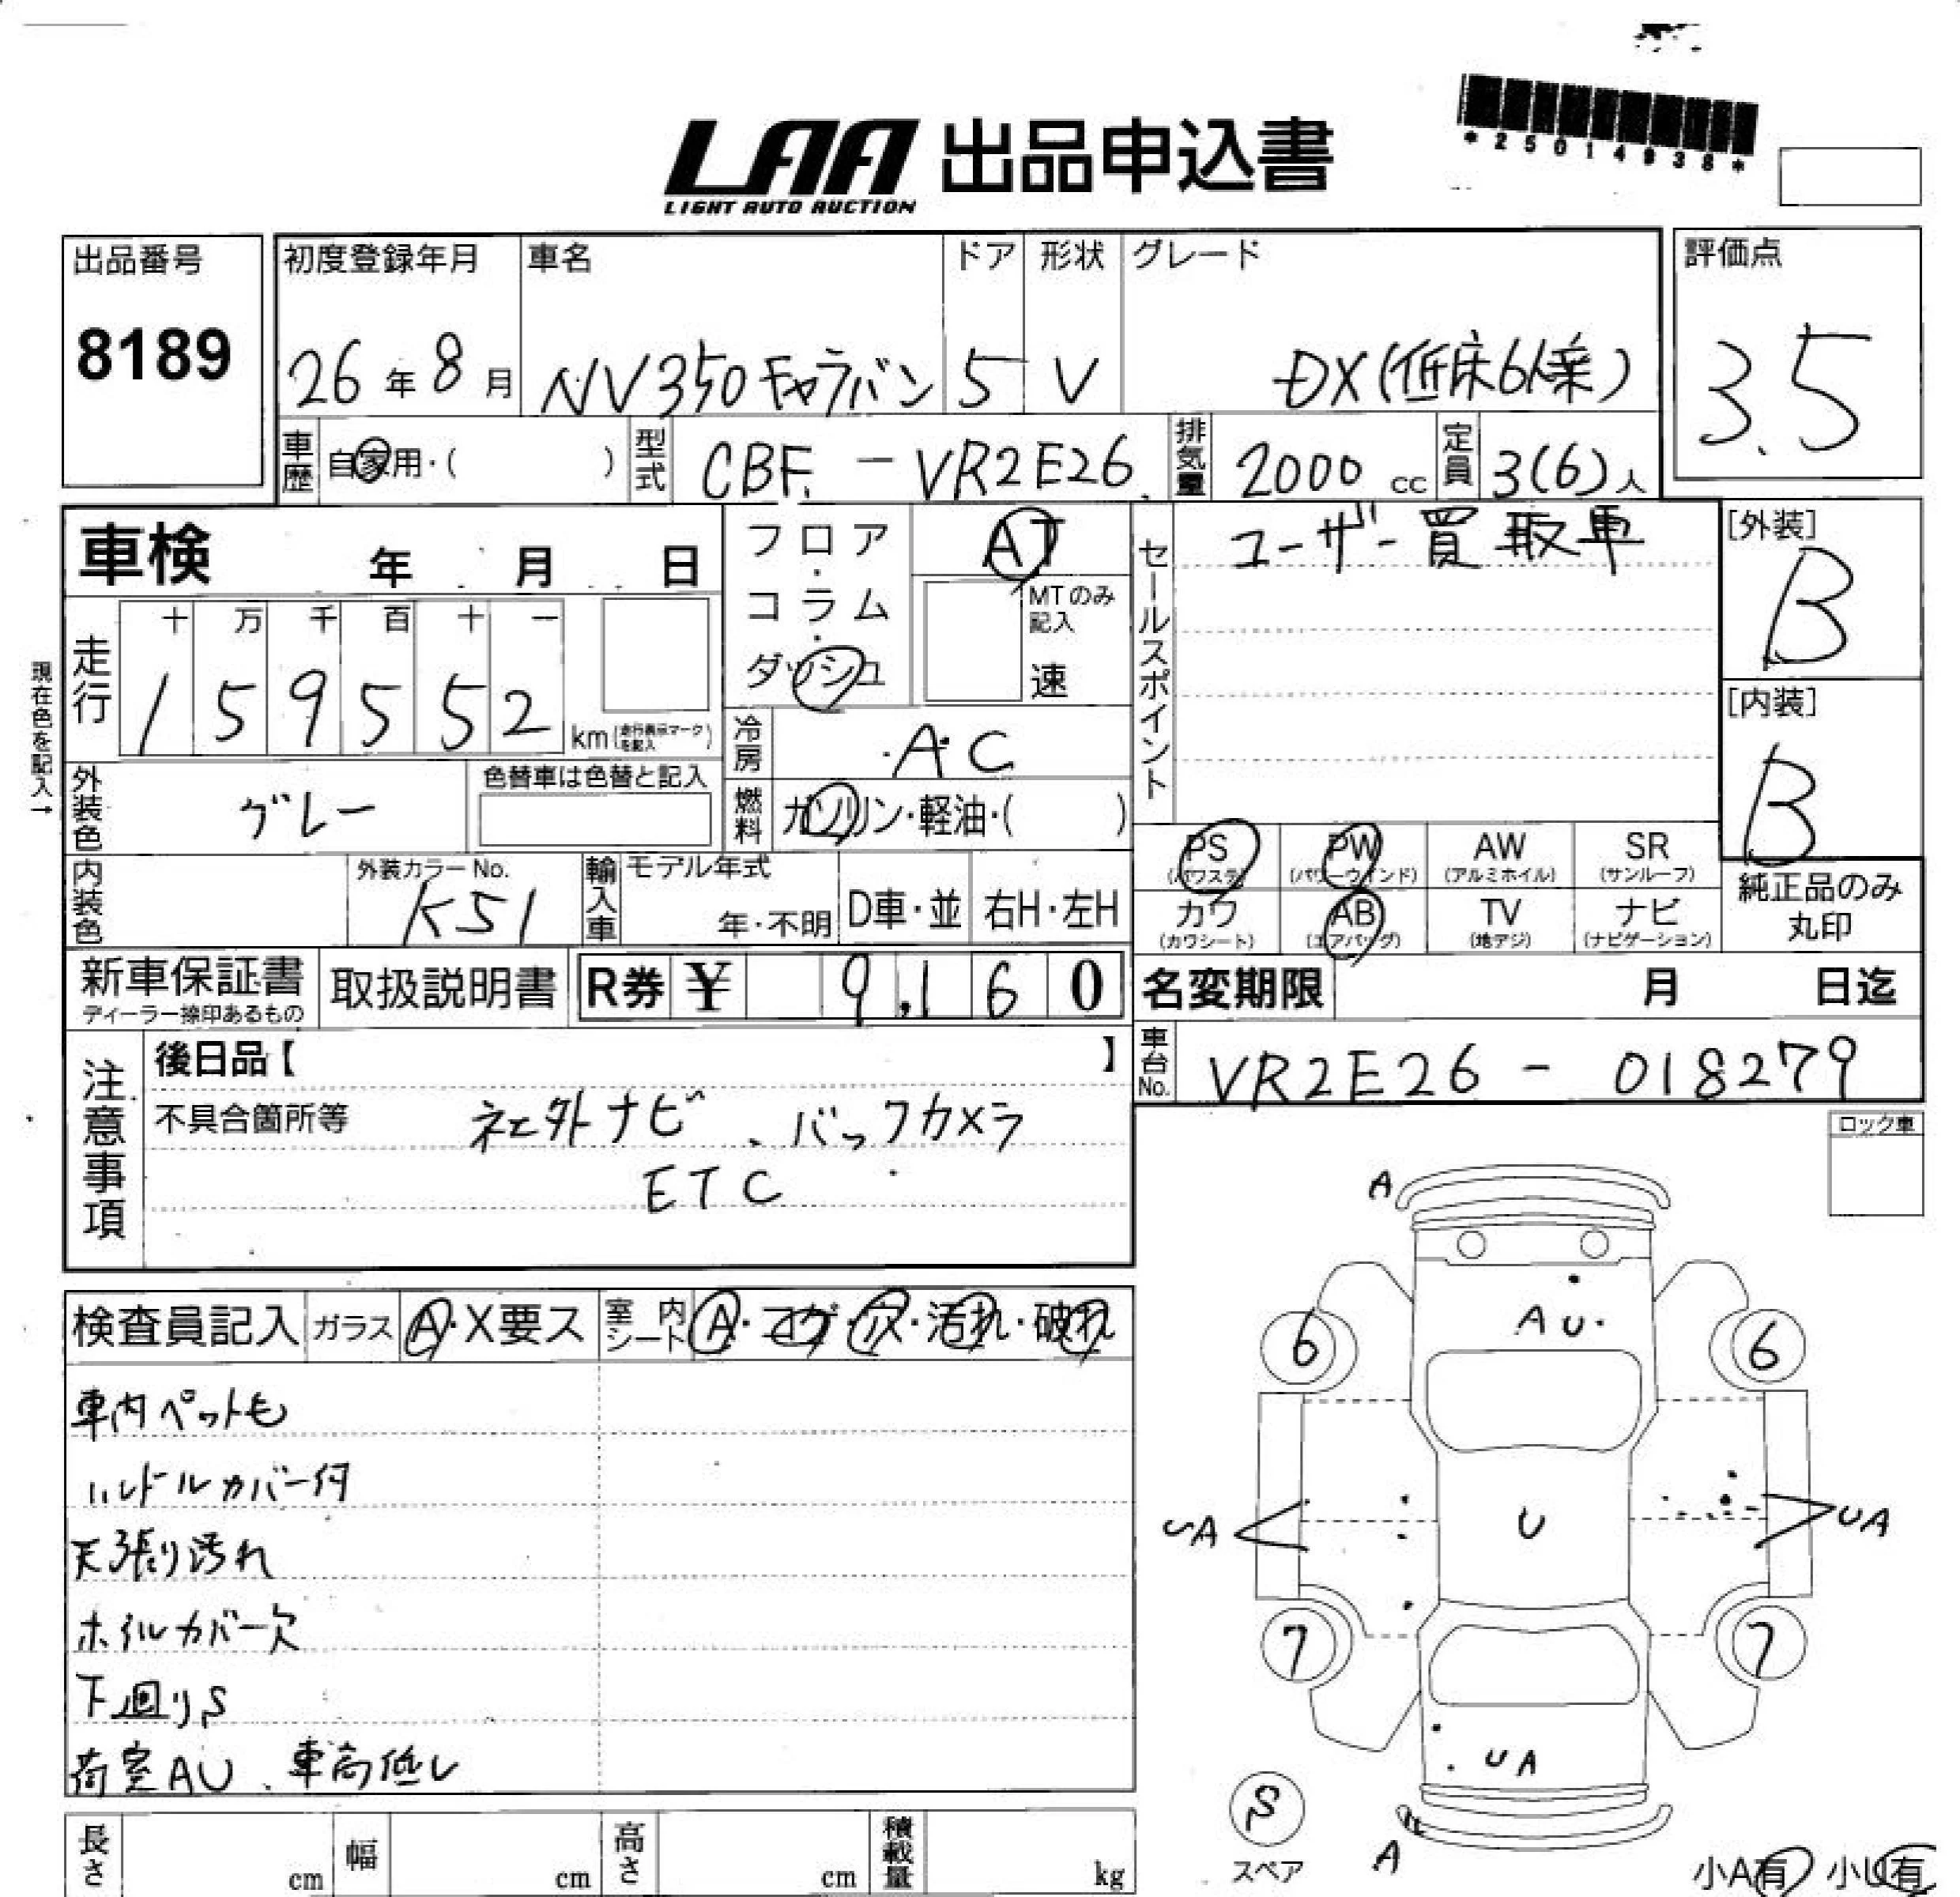 *25014938*
LAA 出品申込書
LIGHT AUTO AUCTION
出品番号
8189
初度登録年月
26年8月
車名
NV350キャラバン
ドア
5
形状
V
グレード
DX(低床6人乗)
評価点
3.5
車歴
自家用・( )
型式
CBF - VR2E26
排気量
2000 cc
定員
3(6)人
車検 年 月 日
走行
十 万 千 百 十 一
1 5 9 5 5 2 km(走行表示マークを記入)
現在色を記入→
外装色
グレー
色替車は色替と記入
内装色
外装カラーNo.
K51
輸入車
モデル年式
年・不明
D車・並
右H・左H
フロア・コラム・ダッシュ
AT
MTのみ記入
速
冷房
A・C
燃料
ガソリン・軽油・( )
セールスポイント
ユーザー買取車
[外装]
B
[内装]
B
PS (パワステ)
PW (パワーウインド)
AW (アルミホイル)
SR (サンルーフ)
カワ (カワシート)
AB (エアバッグ)
TV (地デジ)
ナビ (ナビゲーション)
純正品のみ丸印
新車保証書
ディーラー捺印あるもの
取扱説明書
R券 ¥ 9,160
名変期限 月 日迄
車台No.
VR2E26 - 018279
注意事項
後日品【 】
不具合箇所等
社外ナビ、バックカメラ
ETC
ロック車
検査員記入
ガラス
A・X要ス
室内シート
A・コゲ・穴・汚れ・破れ
車内ペット毛
ハンドルカバー付
天張り汚れ
ホイルカバー欠
下回りS
荷室AU、車高低し
A
AU
6
6
UA
U
UA
7
7
UA
S
スペア
A
小A有
小U有
長さ cm
幅 cm
高さ cm
積載量 kg